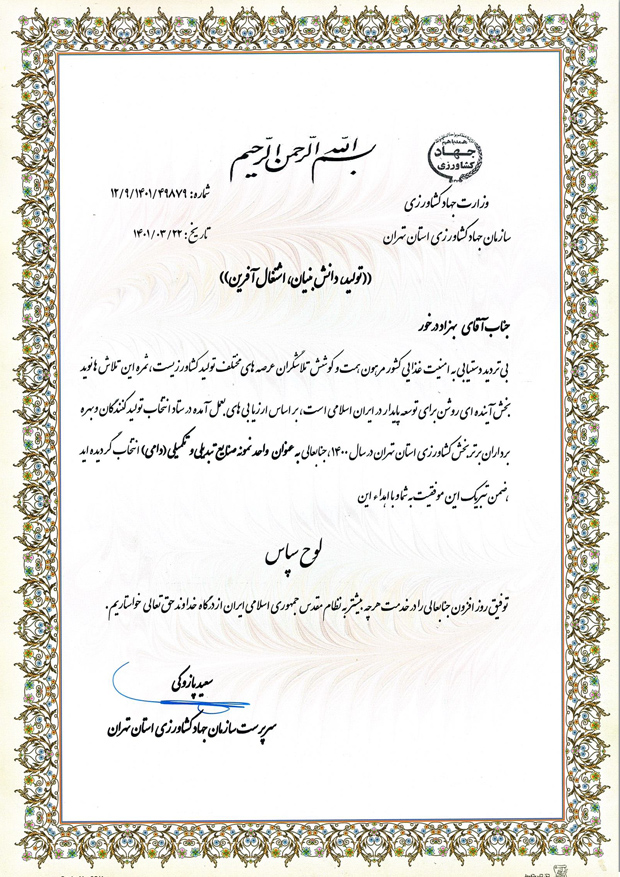 بسم الله الرحمن الرحیم
همه با هم
جهاد
کشاورزی
شماره: ۱۲/۹/۱۴۰۱/۴۹۸۷۹
وزارت جهاد کشاورزی
تاریخ: ۱۴۰۱/۰۳/۲۲
سازمان جهاد کشاورزی استان تهران
((تولید، دانش بنیان، اشتغال آفرین))
جناب آقای بهزاد درخور
بی تردید دستیابی به امنیت غذایی کشور مرهون همت و کوشش تلاشگران عرصه های مختلف تولید کشاورزیست، ثمره این تلاش ها نوید
بخش آینده ای روشن برای توسعه پایدار در ایران اسلامی است، بر اساس ارزیابی های بعمل آمده در ستاد انتخاب تولید کنندگان و بهره
برداران برتر بخش کشاورزی استان تهران در سال ۱۴۰۰، جنابعالی به عنوان واحد نمونه صنایع تبدیلی و تکمیلی (دامی) انتخاب گردیده اید
،ضمن تبریک این موفقیت به شما و با اهداء این
لوح سپاس
توفیق روز افزون جنابعالی را در خدمت هرچه بیشتر به نظام مقدس جمهوری اسلامی ایران از درگاه خداوند حق تعالی خواستاریم.
سعید پازوکی
سرپرست سازمان جهاد کشاورزی استان تهران